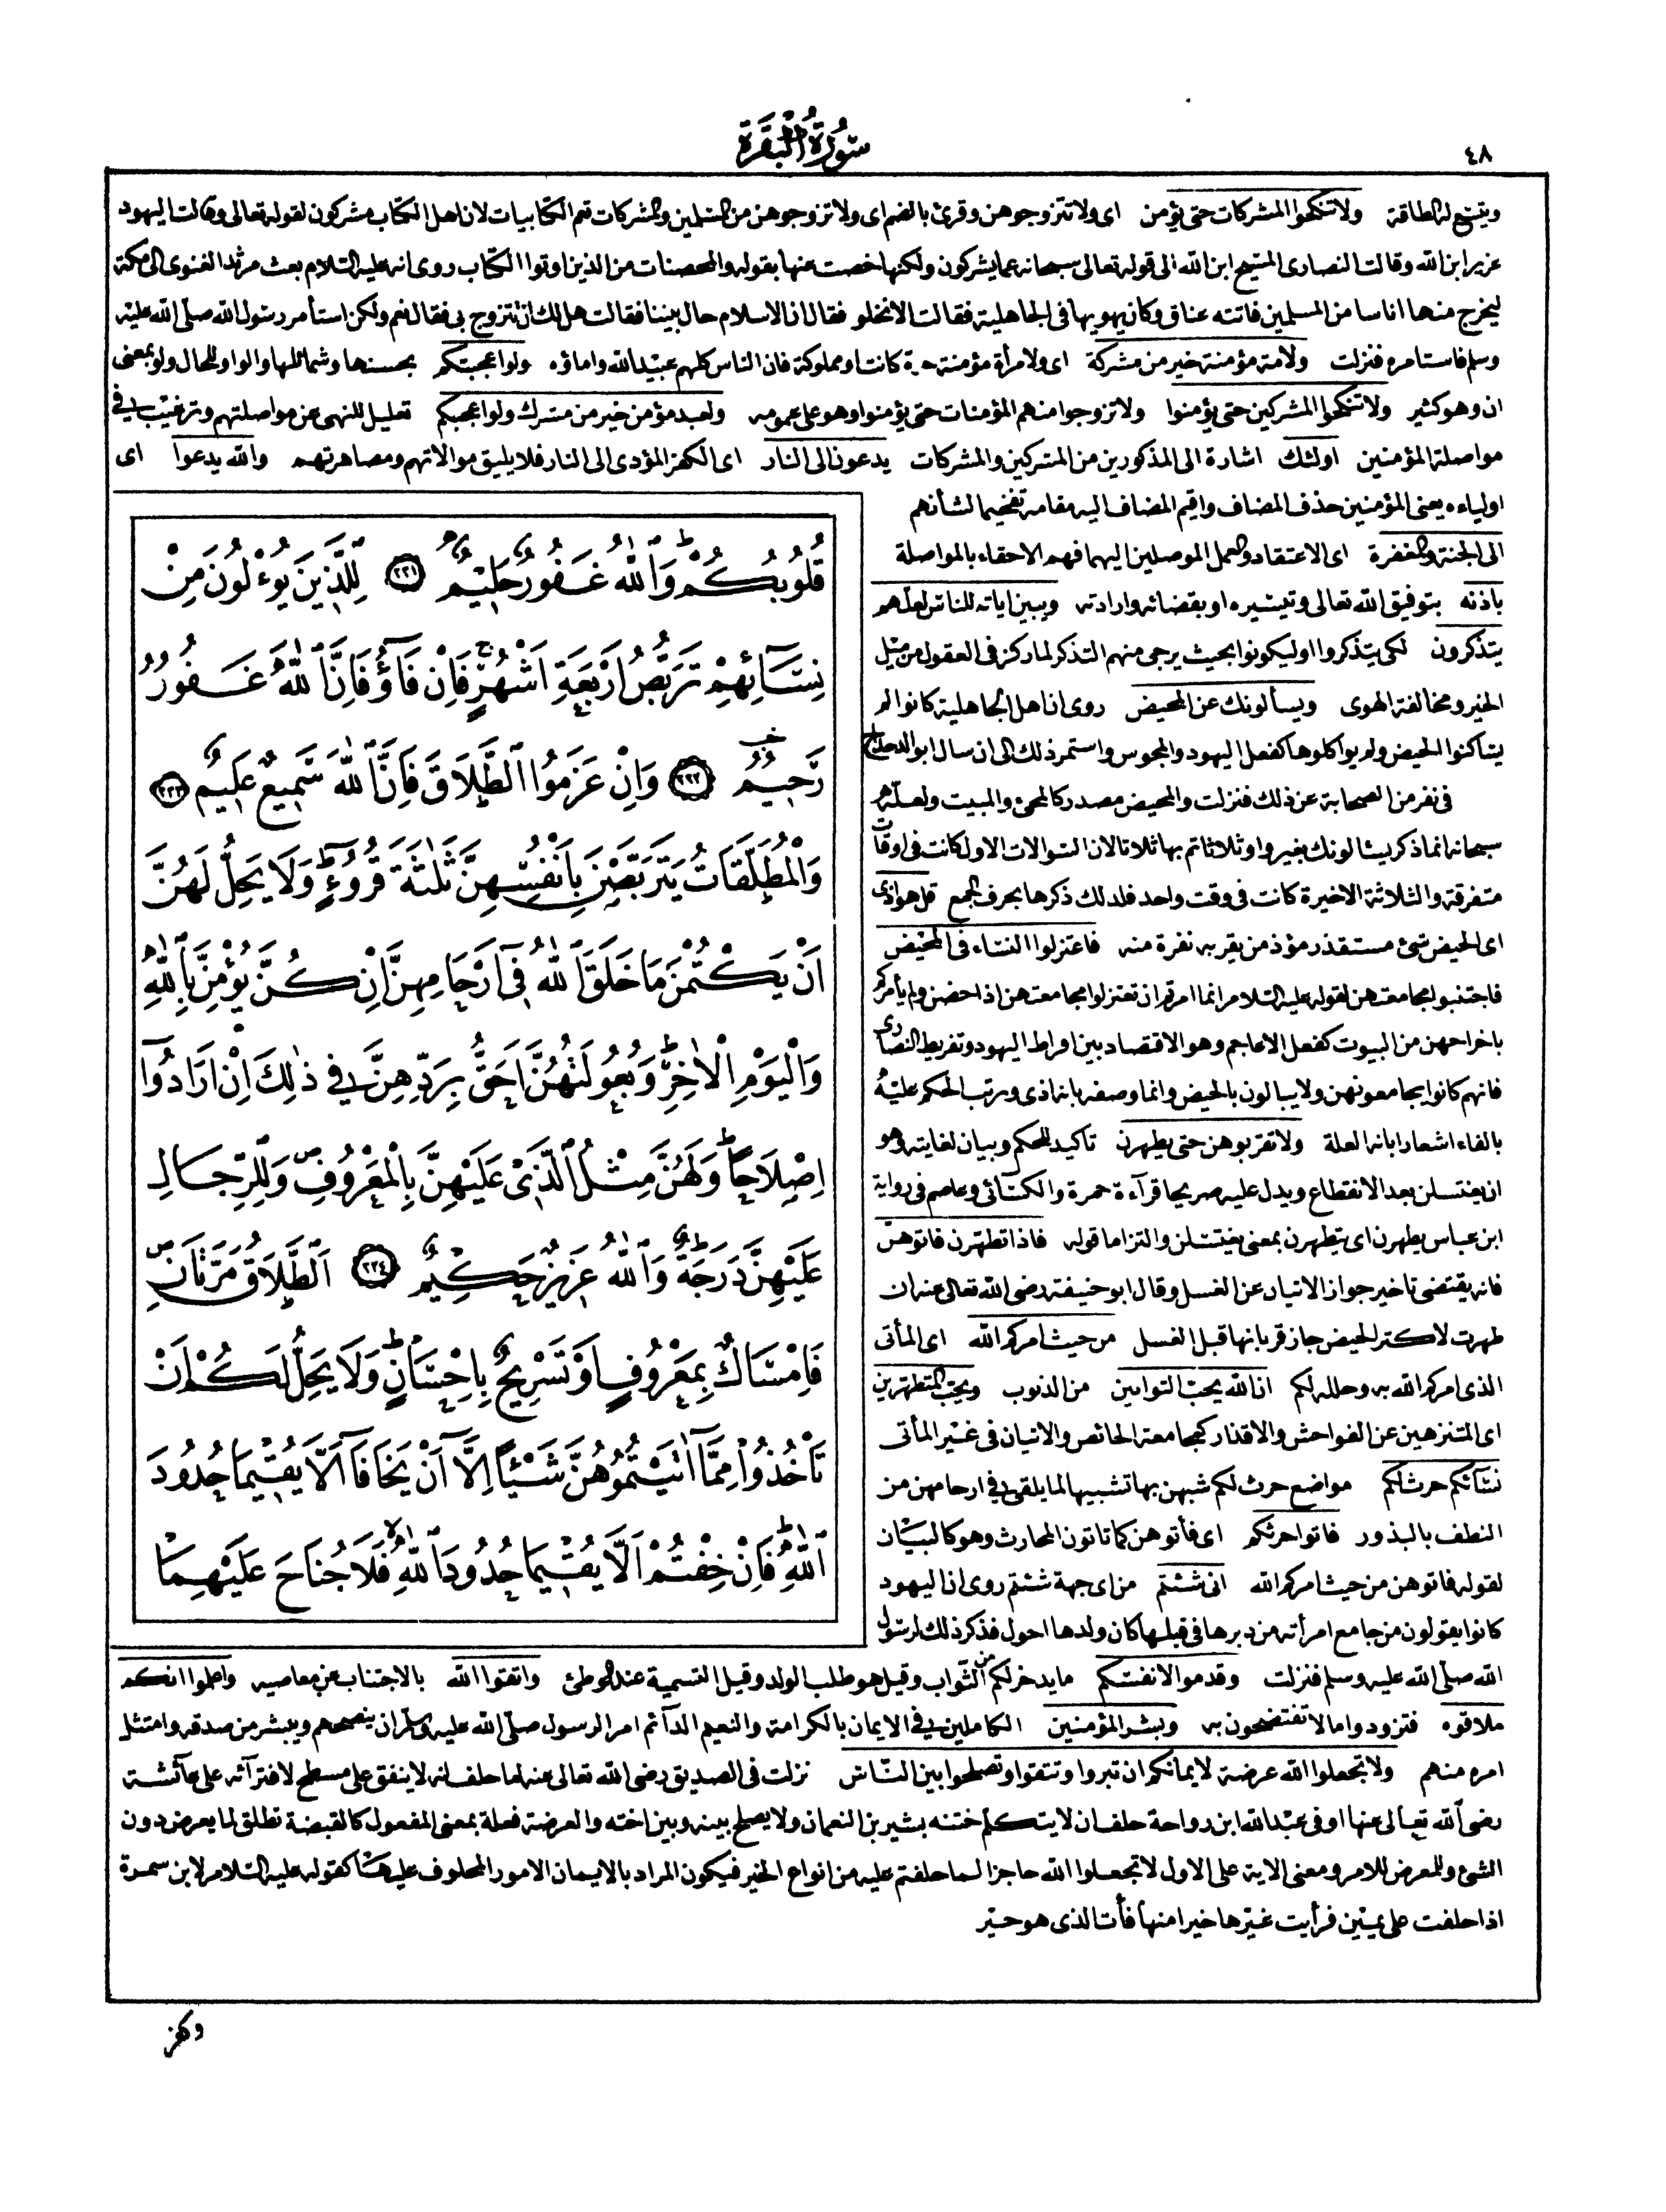 ٤٨
سُورَةُ الْبَقَرَةِ
ويتسع له الطاقة ولا تنكحوا المشركات حتى يؤمن اى ولا تتزوجوهن وقرئ بالضم اى ولا تزوجوهن من المسلمين والمشركات تعم الكتابيات لان اهل الكتاب مشركون لقوله تعالى وقالت اليهود
عزير ابن الله وقالت النصارى المسيح ابن الله الى قوله تعالى سبحانه عما يشركون ولكنها خصت عنها بقوله والمحصنات من الذين اوتوا الكتاب روى انه عليه السلام بعث مرثد الغنوى الى مكة
ليخرج منها اناسا من المسلمين فاتته عناق وكان يهويها فى الجاهلية فقالت الا نخلو فقال ان الاسلام حال بيننا فقالت هل لك ان تتزوج بى فقال نعم ولكن استأمر رسول الله صلى الله عليه
وسلم فاستامره فنزلت ولامة مؤمنة خير من مشركة اى ولامرأة مؤمنة حرة كانت او مملوكة فان الناس كلهم عبيد الله واماؤه ولو اعجبتكم بحسنها وشمائلها والواو للحال ولو بمعنى
ان وهو كثير ولا تنكحوا المشركين حتى يؤمنوا ولا تزوجوا منهم المؤمنات حتى يؤمنوا وهو على عمومه ولعبد مؤمن خير من مشرك ولو اعجبكم تعليل للنهى عن مواصلتهم وترغيب فى
مواصلة المؤمنين اولئك اشارة الى المذكورين من المشركين والمشركات يدعون الى النار اى الكفر المؤدى الى النار فلا يليق موالاتهم ومصاهرتهم والله يدعوا اى
اولياءه يعنى المؤمنين حذف المضاف واقيم المضاف اليه مقامه تفخيما لشأنهم
الى الجنة والمغفرة اى الاعتقاد والعمل الموصلين اليهما فهم الاحقاء بالمواصلة
باذنه بتوفيق الله تعالى وتيسيره او بقضائه وارادته ويبين اياته للناس لعلهم
يتذكرون لكى يتذكروا او ليكونوا بحيث يرجى منهم التذكر لما ركز فى العقول من ميل
الخير ومخالفة الهوى ويسألونك عن المحيض روى ان اهل الجاهلية كانوا لم
يساكنوا الحيض ولم يواكلوها كفعل اليهود والمجوس واستمر ذلك الى ان سال ابو الدحداح
فى نفر من الصحابة عن ذلك فنزلت والمحيض مصدر كالمجئ والمبيت ولعله
سبحانه انما ذكر يسئلونك بغير واو ثلاثا ثم بها ثلاثا لان السوالات الاول كانت فى اوقات
متفرقة والثلاثة الاخيرة كانت فى وقت واحد فلذلك ذكرها بحرف الجمع قل هو اذى
اى الحيض شئ مستقذر مؤذ من يقربه نفرة منه فاعتزلوا النساء فى المحيض
فاجتنبوا مجامعتهن لقوله عليه السلام انما امرتم ان تعتزلوا مجامعتهن اذا حضن ولم يأمركم
باخراجهن من البيوت كفعل الاعاجم وهو الاقتصاد بين افراط اليهود وتفريط النصارى
فانهم كانوا يجامعونهن ولا يبالون بالحيض وانما وصفه بانه اذى ورتب الحكم عليه
بالفاء اشعارا بانه العلة ولا تقربوهن حتى يطهرن تاكيد للحكم وبيان لغايته وهو
ان يغتسلن بعد الانقطاع ويدل عليه صريحا قرآءة حمزة والكسائى وعاصم فى رواية
ابن عباس يطهرن اى يتطهرن بمعنى يغتسلن والتزاما قوله فاذا تطهرن فاتوهن
فانه يقتضى تاخير جواز الاتيان عن الغسل وقال ابو حنيفة رضى الله تعالى عنه ان
طهرت لاكثر الحيض جاز قربانها قبل الغسل من حيث امركم الله اى المأتى
الذى امركم الله به وحلله لكم ان الله يحب التوابين من الذنوب ويحب المتطهرين
اى المتنزهين عن الفواحش والاقذار كمجامعة الحائض والاتيان فى غير المأتى
نسائكم حرث لكم مواضع حرث لكم شبههن بها تشبيها لما يلقى فى ارحامهن من
النطف بالبذور فاتوا حرثكم اى فأتوهن كما تاتون المحارث وهو كالبيان
لقوله فاتوهن من حيث امركم الله انى شئتم من اى جهة شئتم روى ان اليهود
كانوا يقولون من جامع امرأته من دبرها فى قبلها كان ولدها احول فذكر ذلك لرسول
قُلُوبُكُمْ وَاللهُ غَفُورٌ حَلِيمٌ ٢٣١ لِلَّذِينَ يُؤْلُونَ مِنْ
نِسَآئِهِمْ تَرَبُّصُ اَرْبَعَةِ اَشْهُرٍ فَاِنْ فَآؤُ فَاِنَّ اللهَ غَفُورٌ
رَحِيمٌ ٢٣٢ وَاِنْ عَزَمُوا الطَّلَاقَ فَاِنَّ اللهَ سَمِيعٌ عَلِيمٌ ٢٣٣
وَالْمُطَلَّقَاتُ يَتَرَبَّصْنَ بِاَنْفُسِهِنَّ ثَلٰثَةَ قُرُوءٍ وَلَا يَحِلُّ لَهُنَّ
اَنْ يَكْتُمْنَ مَا خَلَقَ اللهُ فِى اَرْحَامِهِنَّ اِنْ كُنَّ يُؤْمِنَّ بِاللهِ
وَالْيَوْمِ الْاٰخِرِ وَبُعُولَتُهُنَّ اَحَقُّ بِرَدِّهِنَّ فِى ذٰلِكَ اِنْ اَرَادُوا
اِصْلَاحًا وَلَهُنَّ مِثْلُ الَّذِى عَلَيْهِنَّ بِالْمَعْرُوفِ وَلِلرِّجَالِ
عَلَيْهِنَّ دَرَجَةٌ وَاللهُ عَزِيزٌ حَكِيمٌ ٢٣٤ اَلطَّلَاقُ مَرَّتَانِ
فَاِمْسَاكٌ بِمَعْرُوفٍ اَوْ تَسْرِيحٌ بِاِحْسَانٍ وَلَا يَحِلُّ لَكُمْ اَنْ
تَأْخُذُوا مِمَّا اٰتَيْتُمُوهُنَّ شَيْئًا اِلَّا اَنْ يَخَافَا اَلَّا يُقِيمَا حُدُودَ
اللهِ فَاِنْ خِفْتُمْ اَلَّا يُقِيمَا حُدُودَ اللهِ فَلَا جُنَاحَ عَلَيْهِمَا
الله صلى الله عليه وسلم فنزلت وقدموا لانفسكم ما يدخر لكم من الثواب وقيل هو طلب الولد وقيل التسمية عند الوطئ واتقوا الله بالاجتناب عن معاصيه واعلموا انكم
ملاقوه فتزودوا ما لا تفتضحون به وبشر المؤمنين الكاملين فى الايمان بالكرامة والنعيم الدآئم امر الرسول صلى الله عليه وسلم ان ينصحهم ويبشر من صدقه وامتثل
امره منهم ولا تجعلوا الله عرضة لايمانكم ان تبروا وتتقوا وتصلحوا بين الناس نزلت فى الصديق رضى الله تعالى عنه لما حلف انه لا ينفق على مسطح لافترآئه على عآئشة
رضى الله تعالى عنها او فى عبد الله ابن رواحة حلف ان لا يتكلم ختنه بشير بن النعمان ولا يصلح بينه وبين اخته والعرضة فعلة بمعنى المفعول كالقبضة تطلق لما يعرض دون
الشئ وللمعرض للامر ومعنى الاية على الاول لا تجعلوا الله حاجزا لما حلفتم عليه من انواع الخير فيكون المراد بالايمان الامور المحلوف عليها كقوله عليه السلام لابن سمرة
اذا حلفت على يمين فرأيت غيرها خيرا منها فأت الذى هو خير
وكفر